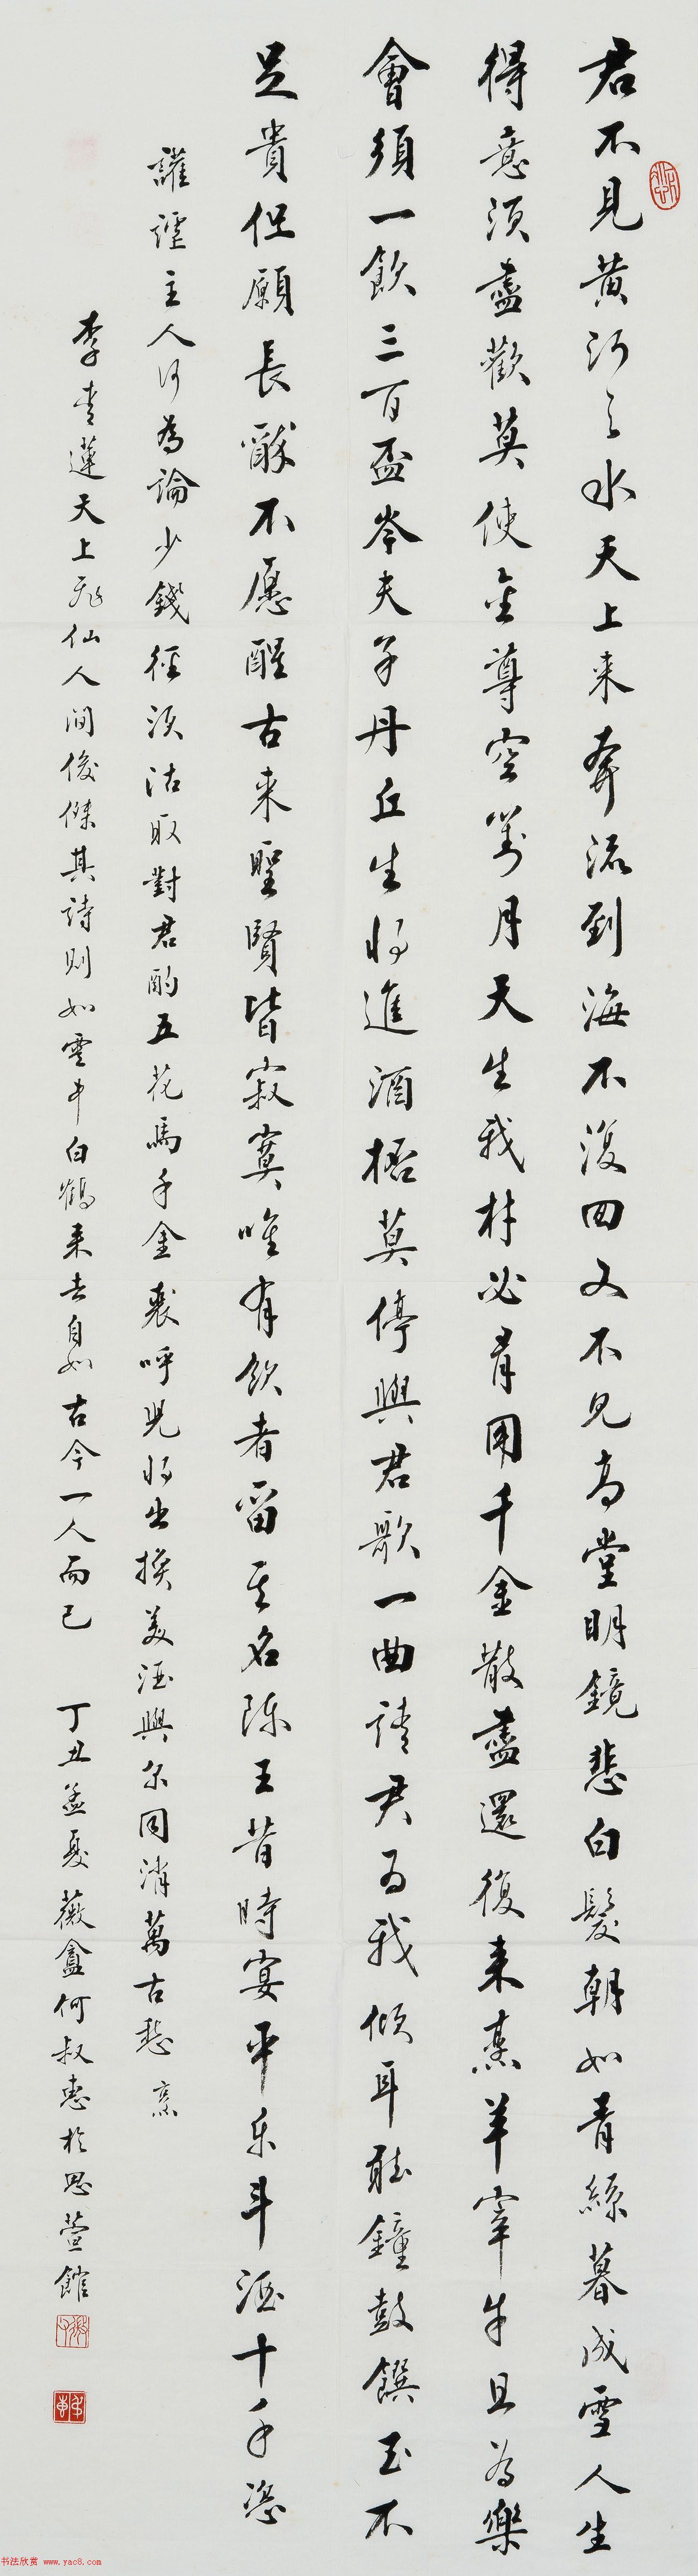 君不見黃河之水天上来奔流到海不復回又不見高堂明鏡悲白髮朝如青絲暮成雪人生
得意須盡歡莫使金尊空對月天生我材必有用千金散盡還復来烹羊宰牛且為樂
會須一飲三百盃岑夫子丹丘生將進酒栝莫停與君歌一曲請君為我傾耳聴鐘鼓饌玉不
足貴但願長醉不愿醒古来聖賢皆寂寞唯有飲者留其名陈王昔時宴平乐斗酒十千恣
讙謔主人何為論少錢徑須沽取對君酌五花馬千金裘呼兒將出換美酒與尔同消萬古愁 烹
李青蓮天上飛仙人間俊傑其詩則如雲中白鶴来去自如古今一人而已 丁丑孟夏薇盦何叔惠於思萱館
书法欣赏 www.yac8.com